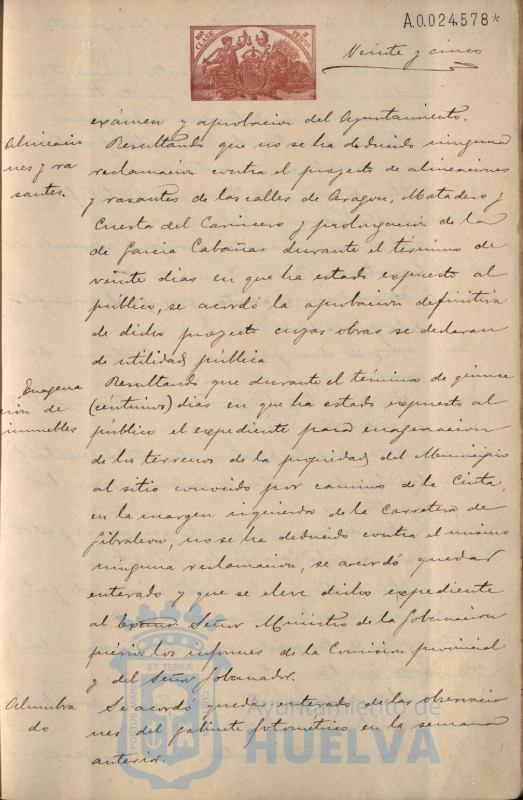 A.0.024.578*
10ª CLASE
2 PESETAS
Veinte y cinco
exámen y aprobacion del Ayuntamiento.
Alineacio
nes y ra
santes.
Resultando que no se ha deducido ninguna
reclamacion contra el proyecto de alineaciones
y rasantes de las calles de Aragon, Matadero y
Cuesta del Carnicero y prolongacion de la
de Garcia Cabañas durante el término de
veinte dias en que ha estado expuesto al
público, se acordó la aprobacion definitiva
de dicho proyecto cuyas obras se declaran
de utilidad pública
Enagena
cion de
inmuebles
Resultando que durante el término de quince
(continuos) dias en que ha estado expuesto al
público el expediente para enagenacion
de los terrenos de la propiedad del Municipio
al sitio conocido por camino de la Cinta,
en la margen izquierda de la Carretera de
Gibraleon, no se ha deducido contra el mismo
ninguna reclamacion, se acordó quedar
enterado y que se eleve dicho expediente
al Excmo Señor Ministro de la Gobernacion
prévio los informes de la Comision provincial
y del Señor Gobernador.
Alumbra
do
Se acordó quedar enterado de las observacio
nes del gabinete fotométrico en la semana
anterior.
Ayuntamiento de
HUELVA
PORTUS MARIS
ET TERRAE